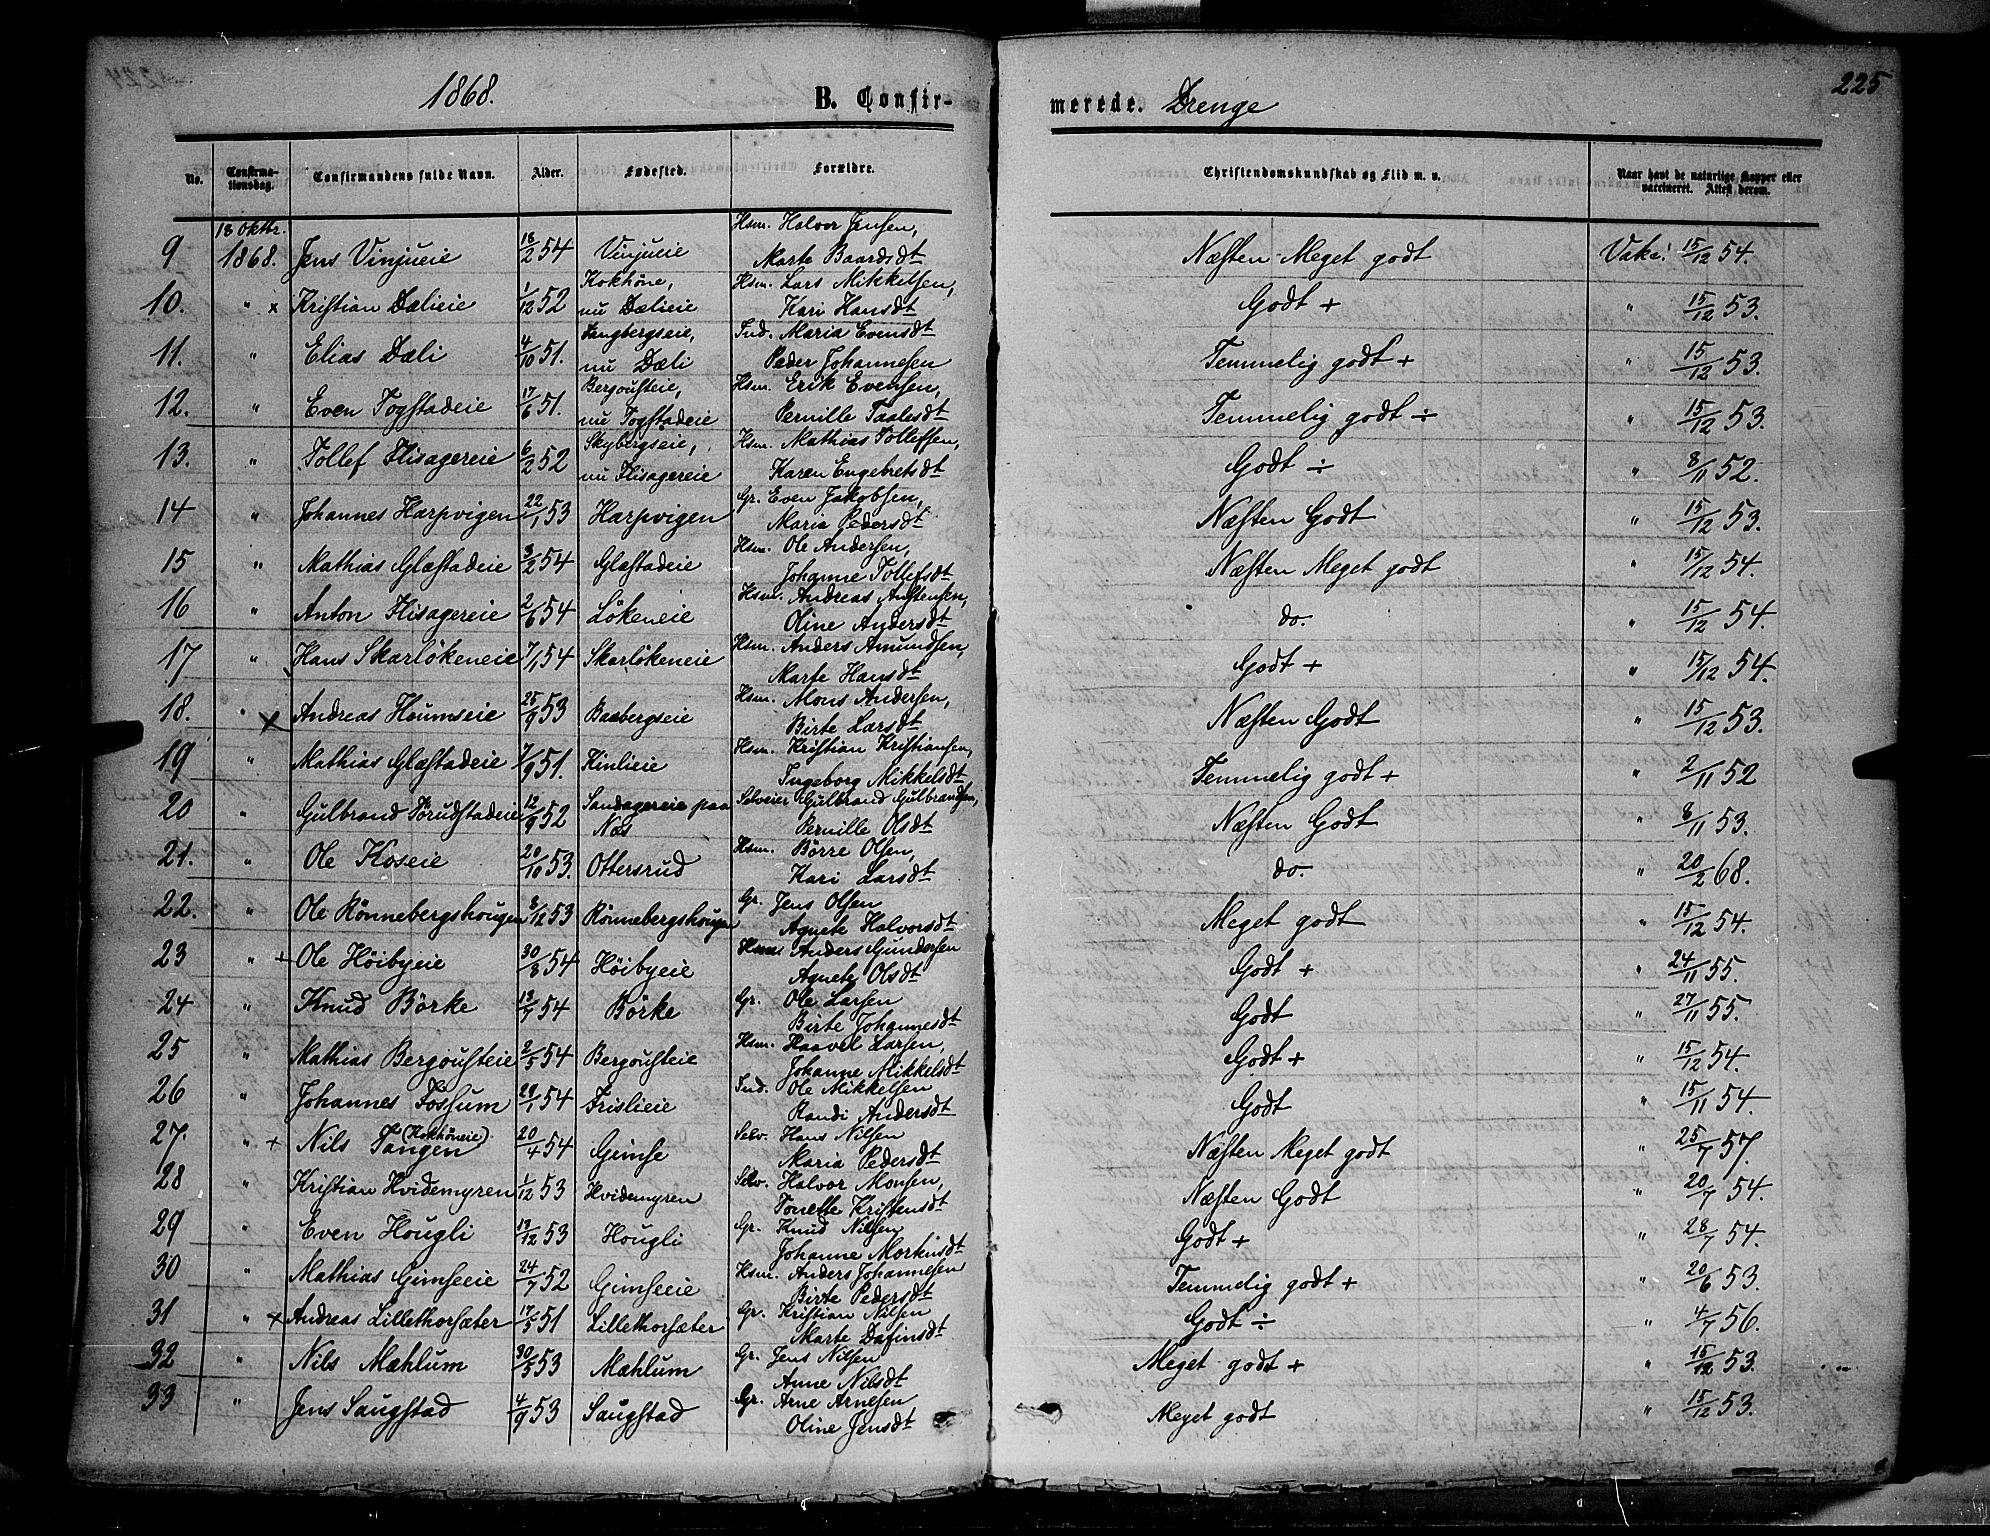 1868.
B. Confir-
merede. Drenge
225
No.
Confirma-
tionsdag.
Confirmandens fulde Navn.
Alder.
Fødested.
Forældre.
Christendomskundskab og Flid m. v.
Naar havt de naturlige Kopper eller
vaccineret. Attest derom.
18 Oktbr.
Hsm. Halvor Jensen,
9 1868. Jens Vinjueie 18/2 54 Vinjueie Marte Baardsdt Næsten Meget godt Vake: 15/12 54.
Kokhöne, Hsm. Lars Mikkelsen,
10. " x Kristian Dælieie 1/12 52 nu Dælieie Kari Hansdt Godt + " 15/12 53.
Tangbergseie, Ind. Maria Evensdt
11. " Elias Dæli 4/10 51. nu Dæli Peder Johannesen Temmelig godt + " 15/12 53.
Bergousteie, Hsm. Erik Evensen,
12. " Even Togstadeie 17/6 51. nu Togstadeie Pernille Taalesdt Temmelig godt ÷ " 15/12 53.
Skybergseie, Hsm. Mathias Tollefsen,
13. " Tollef Flisagereie 6/2 52 nu Flisagereie Karen Engebretsdt Godt ÷ " 8/11 52.
Gr. Even Jakobsen,
14 " Johannes Harpvigen 22/1 53 Harpvigen Maria Pedersdt Næsten Godt " 15/12 53.
Hsm. Ole Andersen,
15 " Mathias Glæstadeie 3/2 54 Glæstadeie Johanne Tollefsdt Næsten Meget godt " 15/12 54.
Hsm. Andreas Anstensen,
16 " Anton Flisagereie 2/6 54 Lökeneie Oline Andersdt do. " 15/12 54.
Hsm. Anders Amundsen,
17 " Hans Skarlökeneie 7/1 54 Skarlökeneie Marte Hansdt Godt + " 15/12 54.
Hsm. Mons Andersen,
18. " x Andreas Houmseie 25/9 53 Baabergseie Birte Larsdt Næsten Godt " 15/12 53.
Hsm. Kristian Kristiansen,
19 " Mathias Glæstadeie 7/9 51. Kinlieie Ingeborg Mikkelsdt Temmelig godt + " 2/11 52
Sandagereie paa Selveier Gulbrand Gulbrandsen,
20 " Gulbrand Törudstadeie 12/9 52 Næs Pernille Olsdt Næsten Godt " 8/11 53.
Hsm. Börre Olsen,
21. " Ole Koseie 20/10 53. Ottersrud Kari Larsdt do. " 20/2 68.
Gr. Jens Olsen
22. " Ole Rönnebergshougen 8/12 53 Rönnebergshougen Agnete Halvorsdt Meget godt " 15/12 54.
Hsm. Anders Gundersen
23 " + Ole Höibyeie 30/8 54 Höibyeie Agnete Olsdt Godt + " 24/11 55.
Gr. Ole Larsen
24 " Knud Börke 13/7 54 Börke Birte Johannesdt Godt " 27/11 55.
Hsm. Haavel Larsen,
25 " Mathias Bergousteie 2/5 54 Bergousteie Johanne Mikkelsdt Godt + " 15/12 54.
Ind. Ole Mikkelsen
26 " Johannes Fossum 29/1 54 Frislieie Randi Andersdt Godt " 15/11 54.
(Kokhöneie) Selv. Hans Nilsen
27. " + Nils Tangen 20/4 54 Gimse Maria Pedersdt Næsten Meget godt " 25/7 57.
Selv. Halvor Monsen,
28 " Kristian Hvidemyren 1/12 53 Hvidemyren Tonette Kristensdt Næsten Godt " 20/7 54.
Gr. Knud Nilsen
29 " Even Hougli 13/12 53 Hougli Johanne Markusdt Godt + " 28/7 54.
Hsm. Anders Johannesen
30 " Mathias Gimseeie 24/7 52 Gimseeie Birte Pedersdt Temmelig godt + " 20/6 53.
Gr. Kristian Nilsen
31 " x Andreas Lillethorsæter 17/5 51 Lillethorsæter Marte Dafinsdt Godt ÷ " 4/7 56.
Gr. Jens Nilsen
32 " Nils Mæhlum 30/5 53 Mæhlum Anne Nilsdt Meget godt + " 15/12 53.
Gr. Arne Arnesen
33 " Jens Saugstad 4/9 53 Saugstad Oline Jensdt Meget godt " 15/12 53.